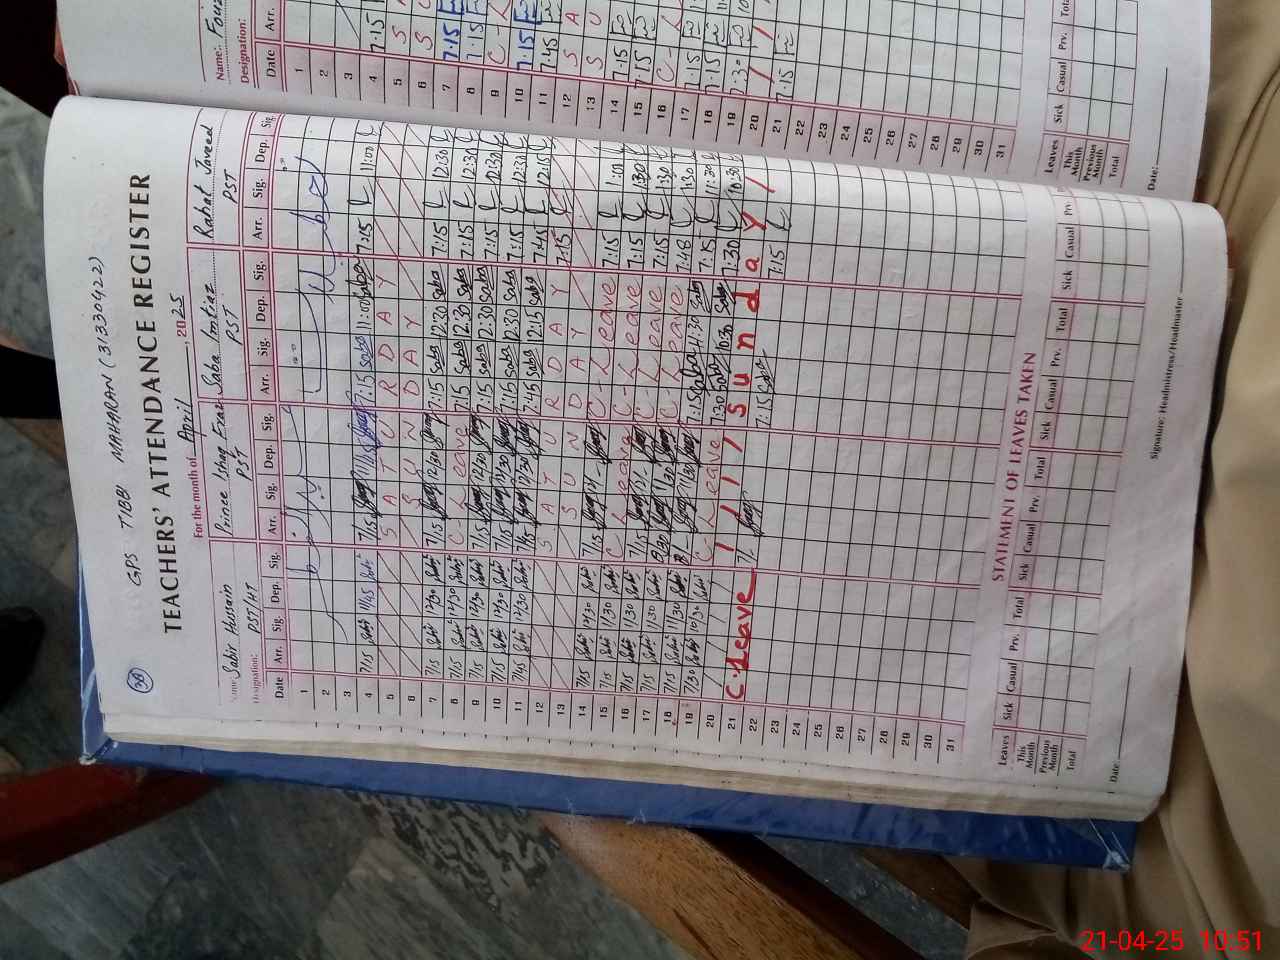 38
GPS TIBBI NAHARAN (31330422)
TEACHERS' ATTENDANCE REGISTER
For the month of April, 2025
Name: Sabir Hussain Prince Ishaq Saba Imtiaz Rahat Javeed
Designation: PST/HT PST PST PST
Date Arr. Sig. Dep. Sig. Arr. Sig. Dep. Sig. Arr. Sig. Dep. Sig. Arr. Sig. Dep. Sig.
1
2
3
4 7/15 Sabir 11/45 Sabir 7/15 11/45 7:15 Saba 11:00 Saba 7:15 11:00
5 SATURDAY
6 SUNDAY
7 7/15 Sabir 12/30 Sabir 7/15 12/30 7:15 Saba 12:30 Saba 7:15 12:30
8 7/15 Sabir 12/30 Sabir C-Leave 7:15 Saba 12:30 Saba 7:15 12:30
9 7/15 Sabir 12/30 Sabir 7/15 12/30 7:15 Saba 12:30 Saba 7:15 12:30
10 7/15 Sabir 12/30 Sabir 7/15 12/30 7:15 Saba 12:30 Saba 7:15 12:30
11 7/45 Sabir 12/30 Sabir 7/45 12/30 7:45 Saba 12:15 Saba 7:45 12:15
12 SATURDAY 7:15
13 SUNDAY
14 7/15 Sabir 12/30 Sabir 7/15 C-Leave 7:15 1:00
15 7/15 Sabir 11/30 Sabir C Leave C-Leave 7:15 1:30
16 7/15 Sabir 11/30 Sabir 7/15 C-Leave 7:15 1:30
17 7/15 Sabir 11/30 Sabir 8/30 11/30 C-Leave 7:48 1:30
18 7/15 Sabir 11/30 Sabir 11/30 7:15 Saba 11:30 Saba 7:15 11:30
19 7/30 Sabir 10/30 Sabir C-Leave 7:30 Saba 10:30 Saba 7:30 10:30
20 Sunday
21 C.Leave 7:15 Saba 7:15
22
23
24
25
26
27
28
29
30
31
STATEMENT OF LEAVES TAKEN
Leaves Sick Casual Prv. Total Sick Casual Prv. Total Sick Casual Prv. Total Sick Casual Prv.
This Month
Previous Month
Total
Date:
Signature: Headmistress/Headmaster
Name:
Designation:
Date Arr.
1
2
3
4 7:15
5 S
6 S
7 7:15
8 7:15
9 C-L
10 7:15
11 7:45
12 S A
13 S U
14 7:15
15 7:15
16 C-L
17 7:15
18 7:15
19 7:30
20
21 7:15
22
23
24
25
26
27
28
29
30
31
Leaves Sick Casual Prv. Total
This Month
Previous Month
Total
Date:
21-04-25 10:51